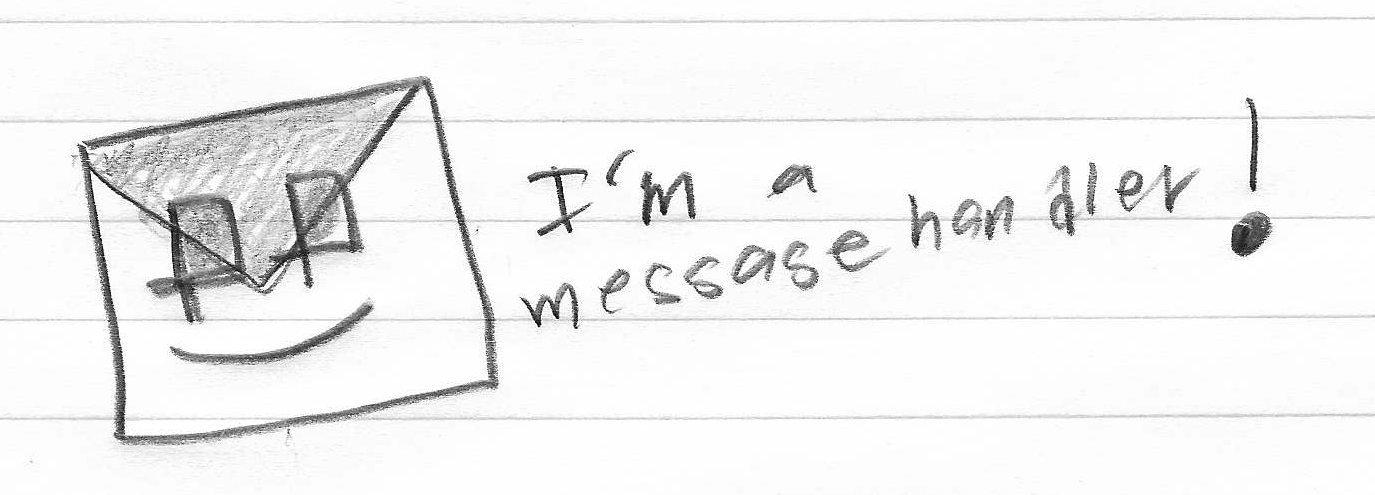 I'm a
message handler!